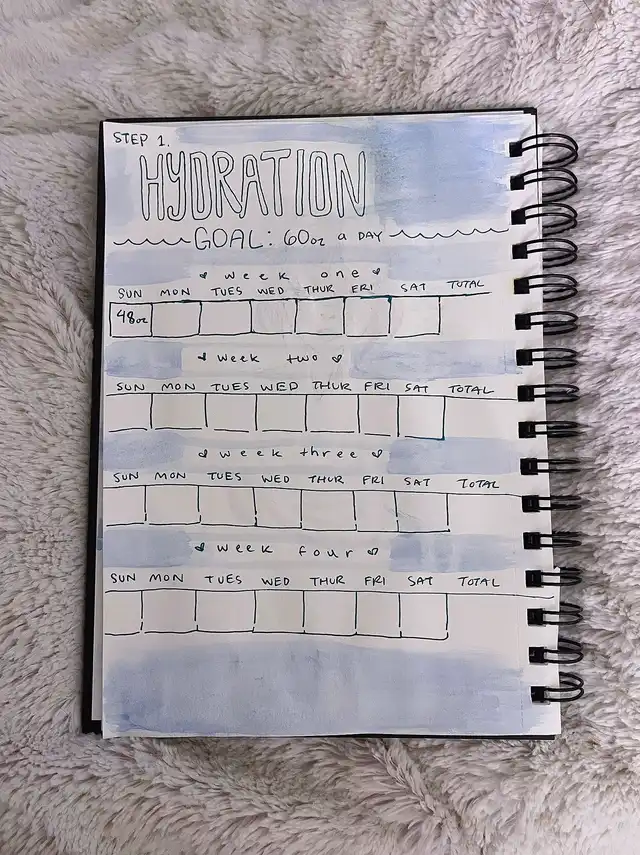 STEP 1.
HYDRATION
GOAL: 60oz a DAY
week one
SUN MON TUES WED THUR FRI SAT TOTAL
48oz
week two
SUN MON TUES WED THUR FRI SAT TOTAL
week three
SUN MON TUES WED THUR FRI SAT TOTAL
week four
SUN MON TUES WED THUR FRI SAT TOTAL